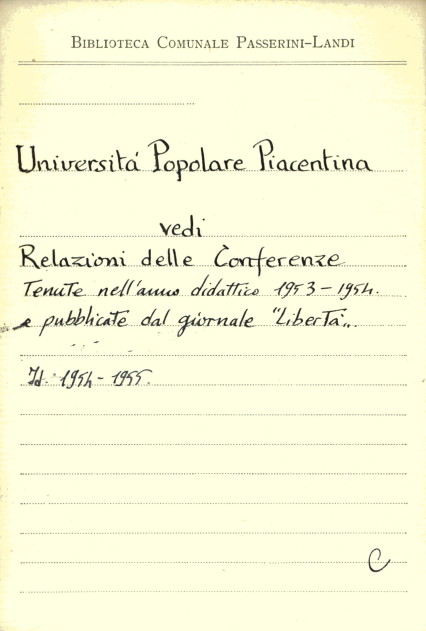 BIBLIOTECA COMUNALE PASSERINI-LANDI
Universitá Popolare Piacentina
vedi
Relazioni delle Conferenze
Tenute nell'anno didattico 1953-1954.
e pubblicate dal giornale "Libertà".
Id. 1954-1955.
C